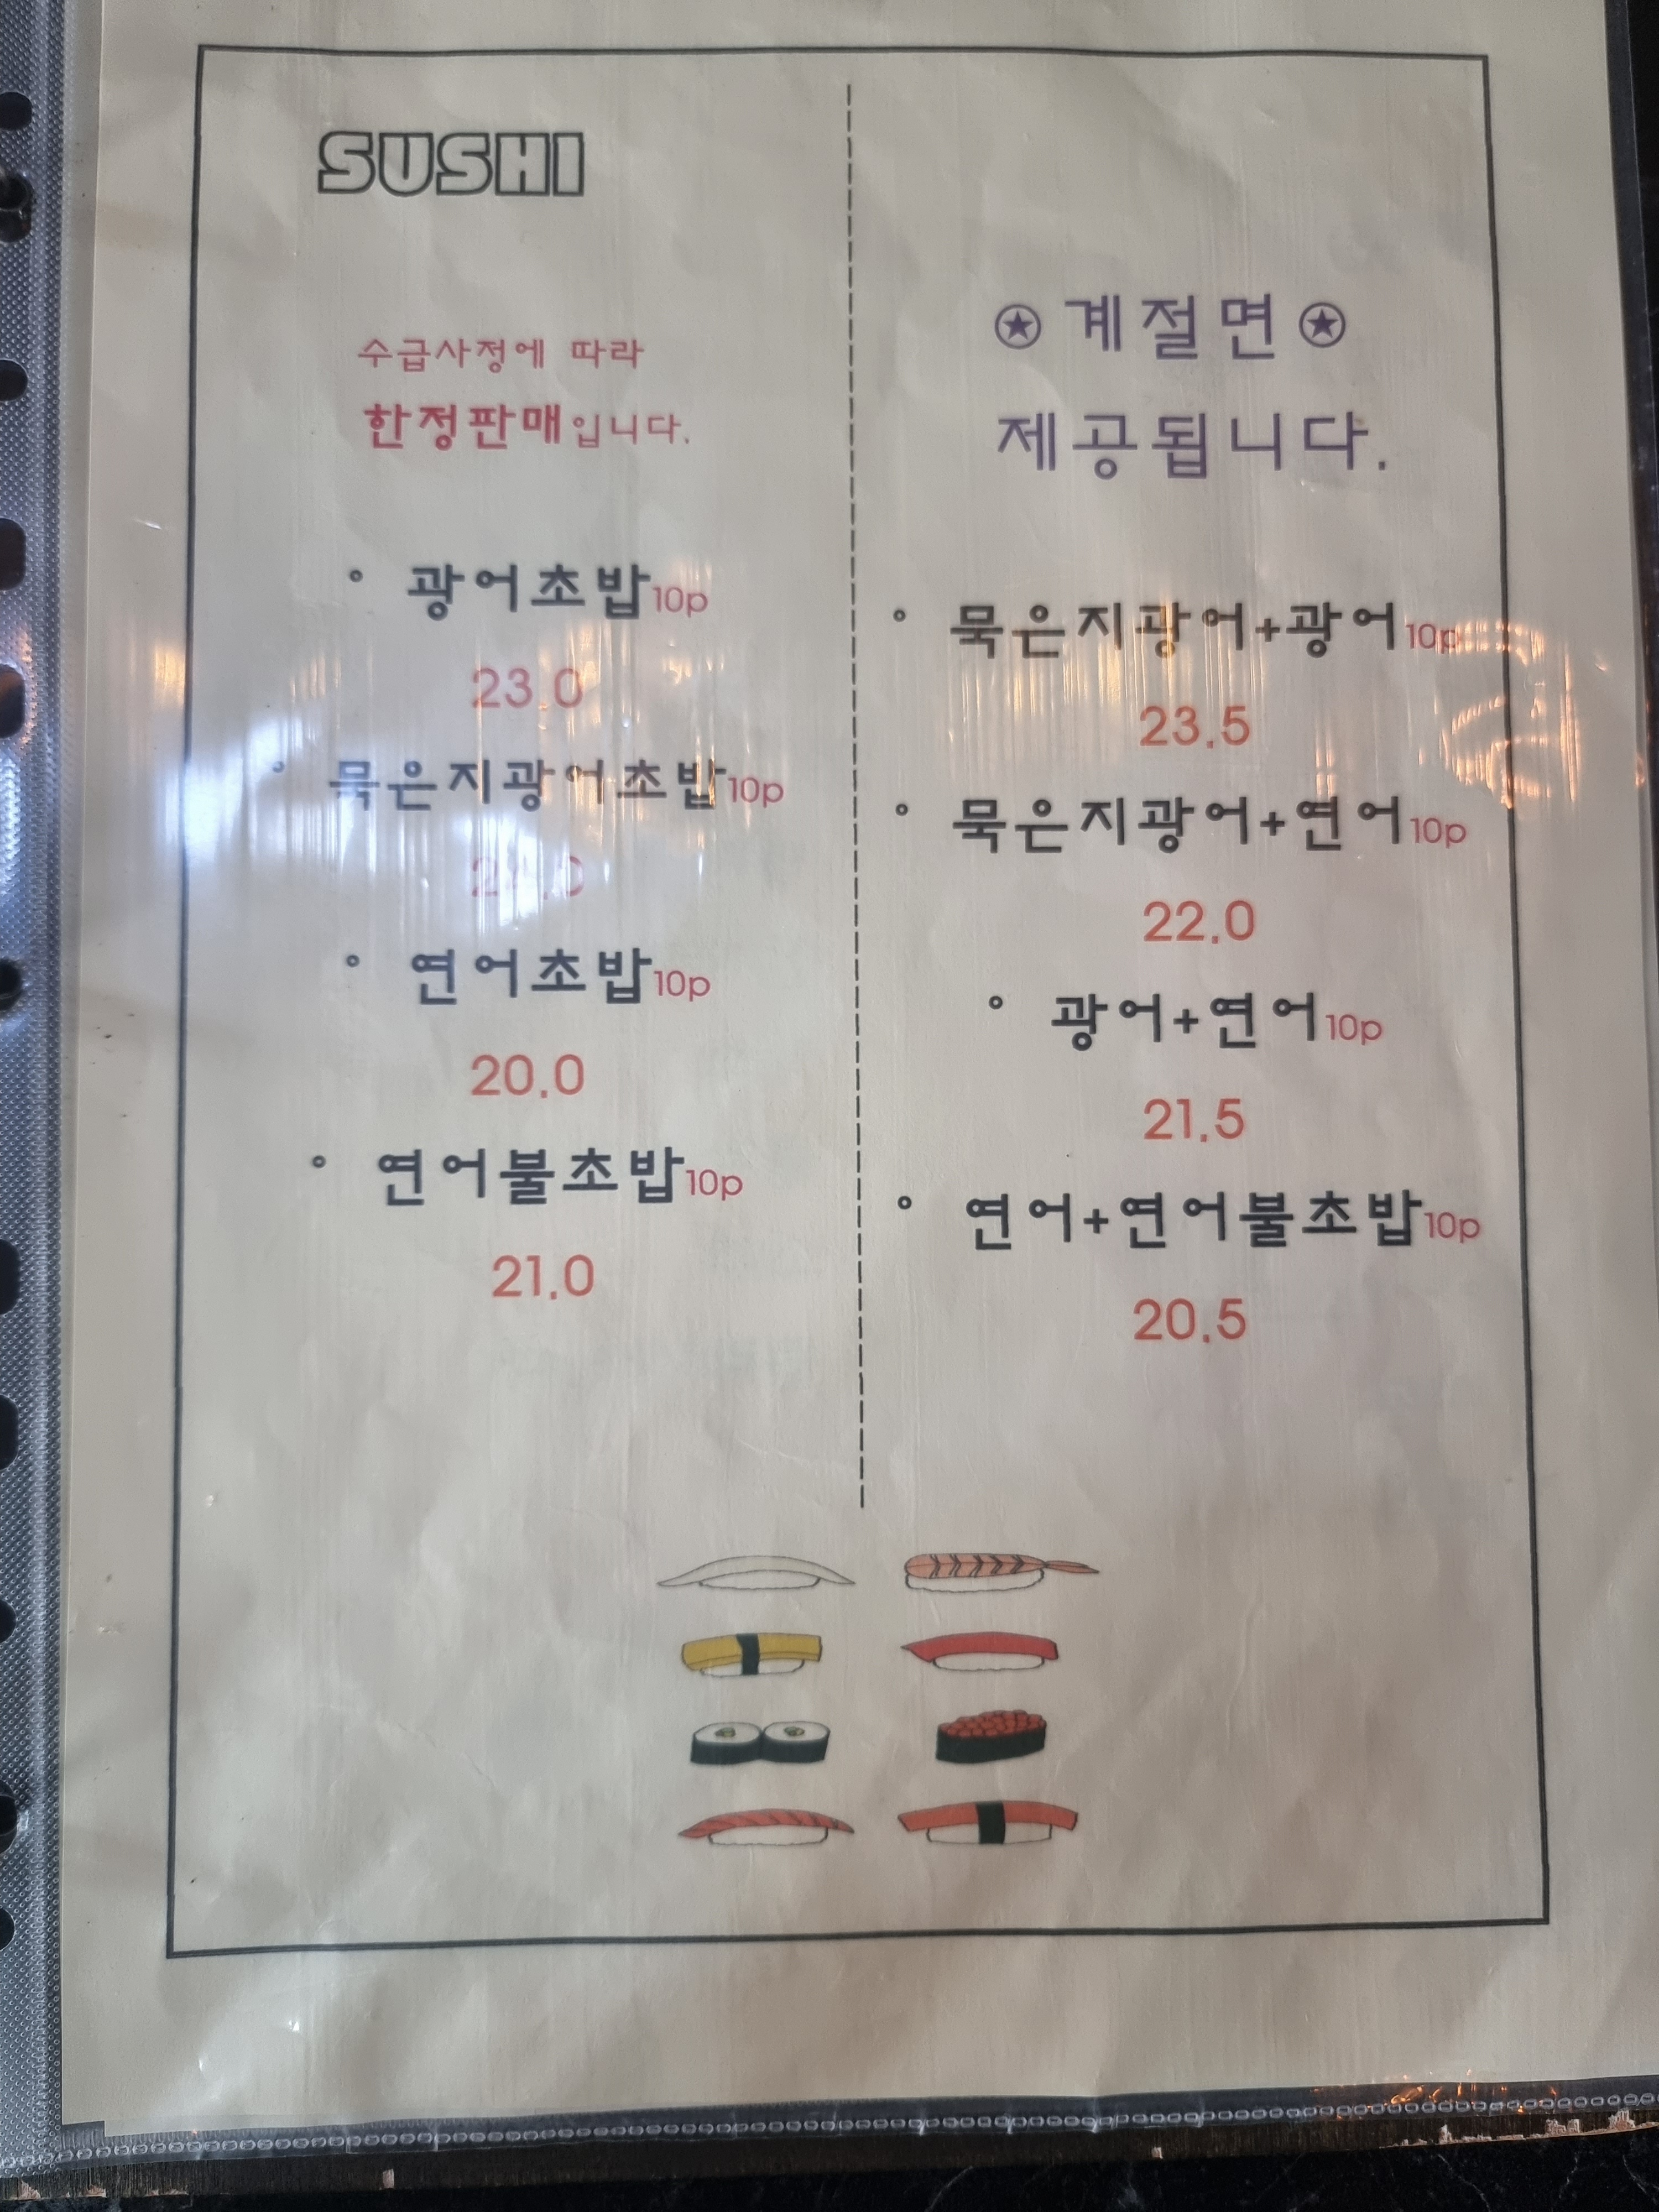 SUSHI
수급사정에 따라
한정판매입니다.
° 광어초밥10p
23.0
° 묵은지광어초밥10p
° 연어초밥10p
20.0
° 연어불초밥10p
21.0
✪계절면✪
제공됩니다.
° 묵은지광어+광어10p
23.5
° 묵은지광어+연어10p
22.0
° 광어+연어10p
21.5
° 연어+연어불초밥10p
20.5